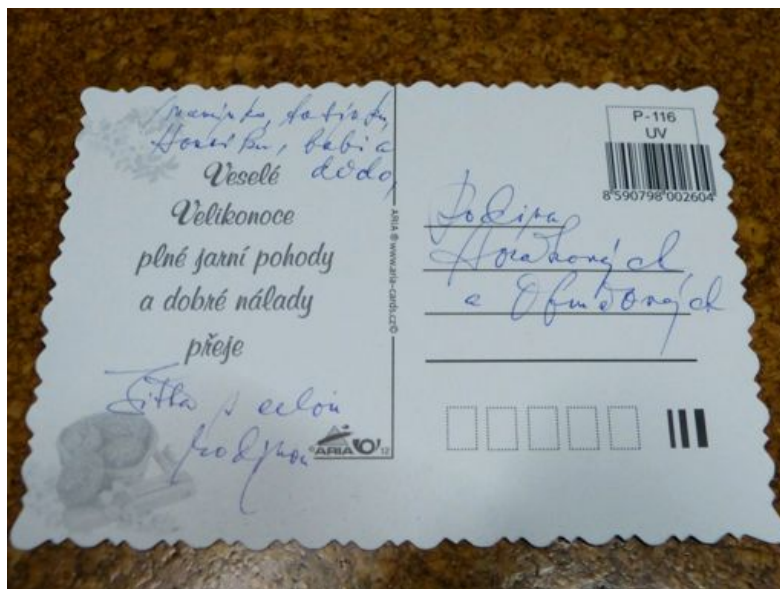 maminko, tatínku,
Honzíku, babi a
dědo,
Veselé
Velikonoce
plné jarní pohody
a dobré nálady
přeje
Jitka s celou
rodinou
ARIA © www.aria-cards.cz©
ARIA 12
P-116
UV
8 590798 002604
Rodina
Horákových
a